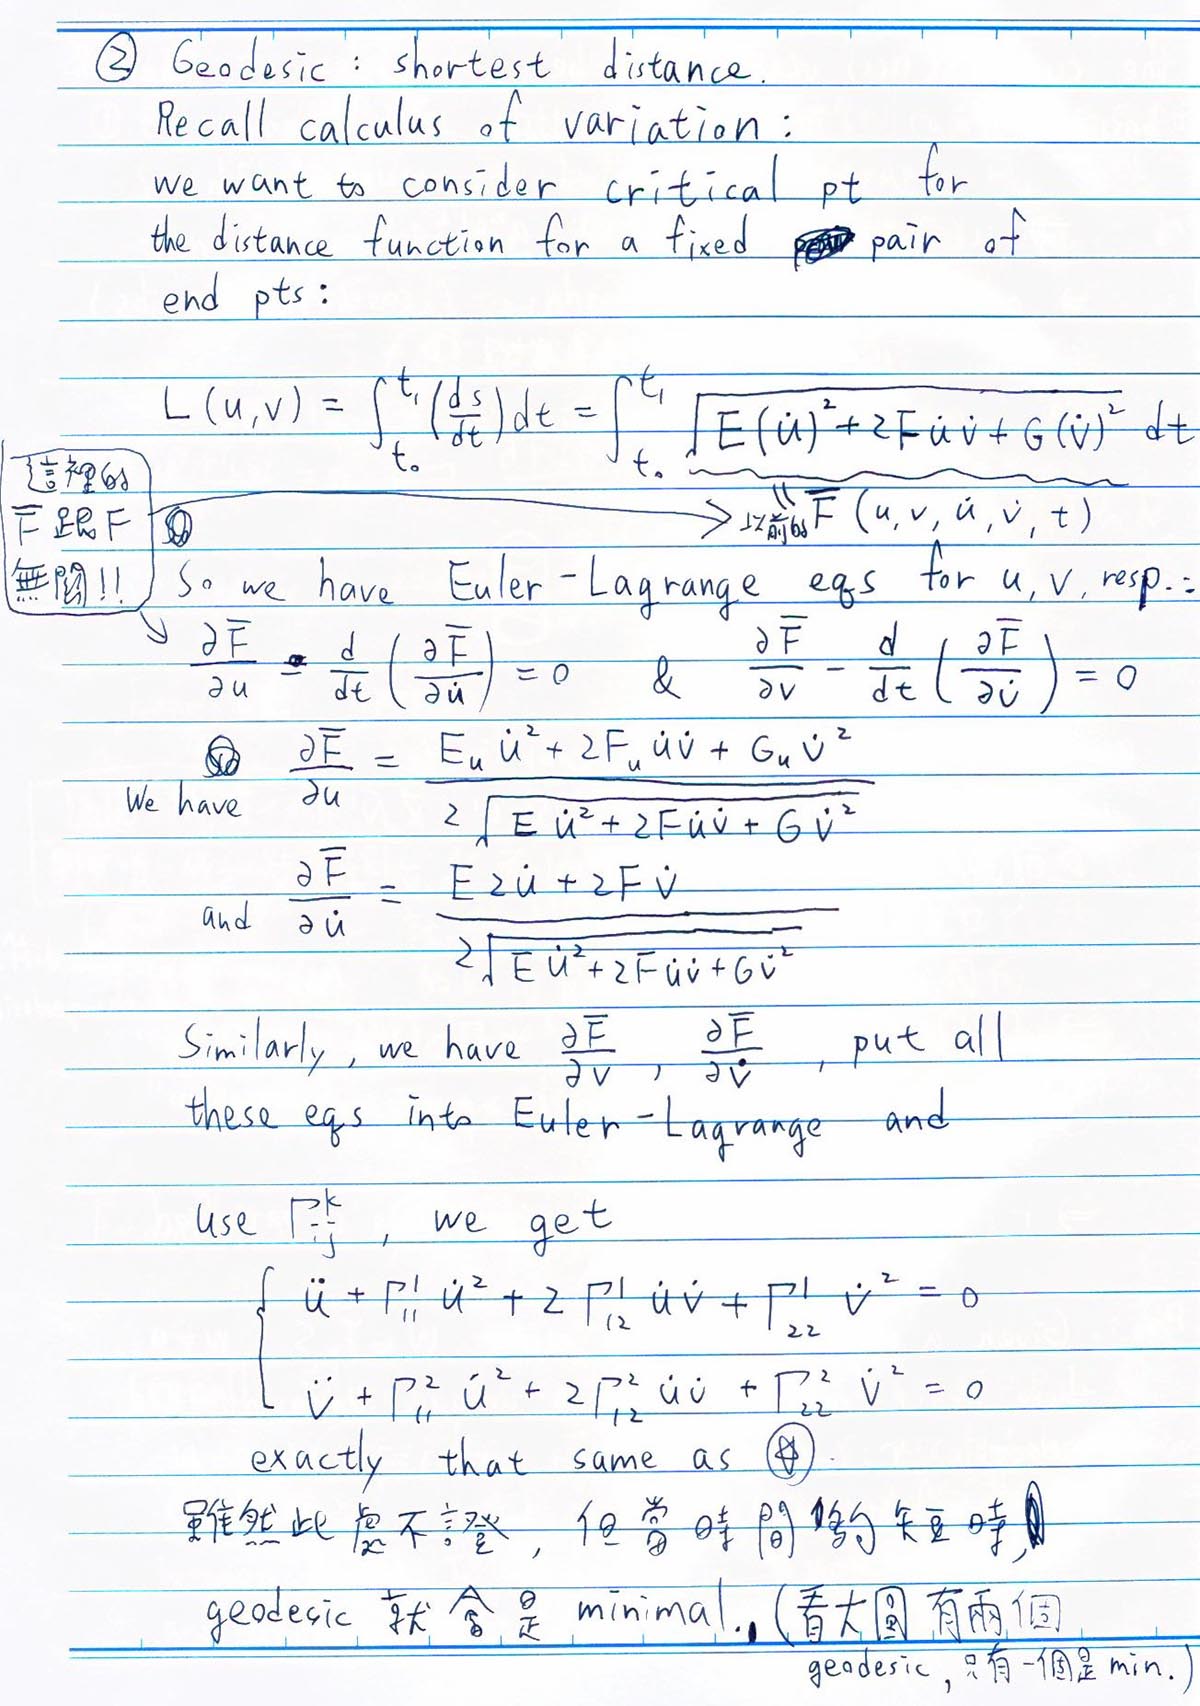 ② Geodesic : shortest distance.
Recall calculus of variation :
we want to consider critical pt for
the distance function for a fixed pair of
end pts :
L(u,v) = ∫_{t₀}^{t₁} (ds/dt) dt = ∫_{t₀}^{t₁} √(E(u̇)² + 2Fu̇v̇ + G(v̇)²) dt
這裡的
F̅ 跟 F
無關!!
|| 以前的 F̅ (u, v, u̇, v̇, t)
So we have Euler-Lagrange eqs for u, v, resp. :
∂F̅/∂u - d/dt (∂F̅/∂u̇) = 0 & ∂F̅/∂v - d/dt (∂F̅/∂v̇) = 0
We have ∂F̅/∂u = (E_u u̇² + 2F_u u̇v̇ + G_u v̇²) / (2√(E u̇² + 2Fu̇v̇ + G v̇²))
and ∂F̅/∂u̇ = (E2u̇ + 2Fv̇) / (2√(E u̇² + 2Fu̇v̇ + Gv̇²))
Similarly, we have ∂F̅/∂v , ∂F̅/∂v̇ , put all
these eqs into Euler-Lagrange and
use Γ_{ij}^k , we get
{ ü + Γ_{11}^1 u̇² + 2Γ_{12}^1 u̇v̇ + Γ_{22}^1 v̇² = 0
v̈ + Γ_{11}^2 u̇² + 2Γ_{12}^2 u̇v̇ + Γ_{22}^2 v̇² = 0
exactly that same as ⍟.
雖然此處不證, 但當時間夠短時,
geodesic 就會是 minimal. (看大圓有兩個
geodesic, 只有一個是 min.)